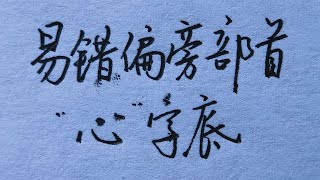 易错偏旁部首
“心”字底